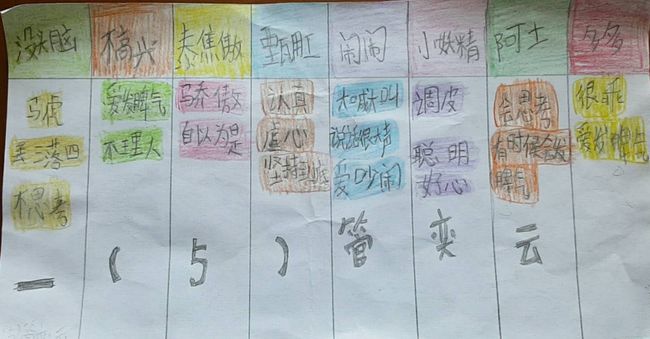 没头脑 不高兴 泰焦傲 闹闹 小妖精 阿土 多多
马虎 爱发脾气 骄傲 认真 调皮 会思考 很乖
丢三落四 不理人 自以为是 虚心 说话很大声 聪明 有时候会发 爱发脾气
不思考 坚持到底 爱吵闹 好心 脾气
一(5)管奕云